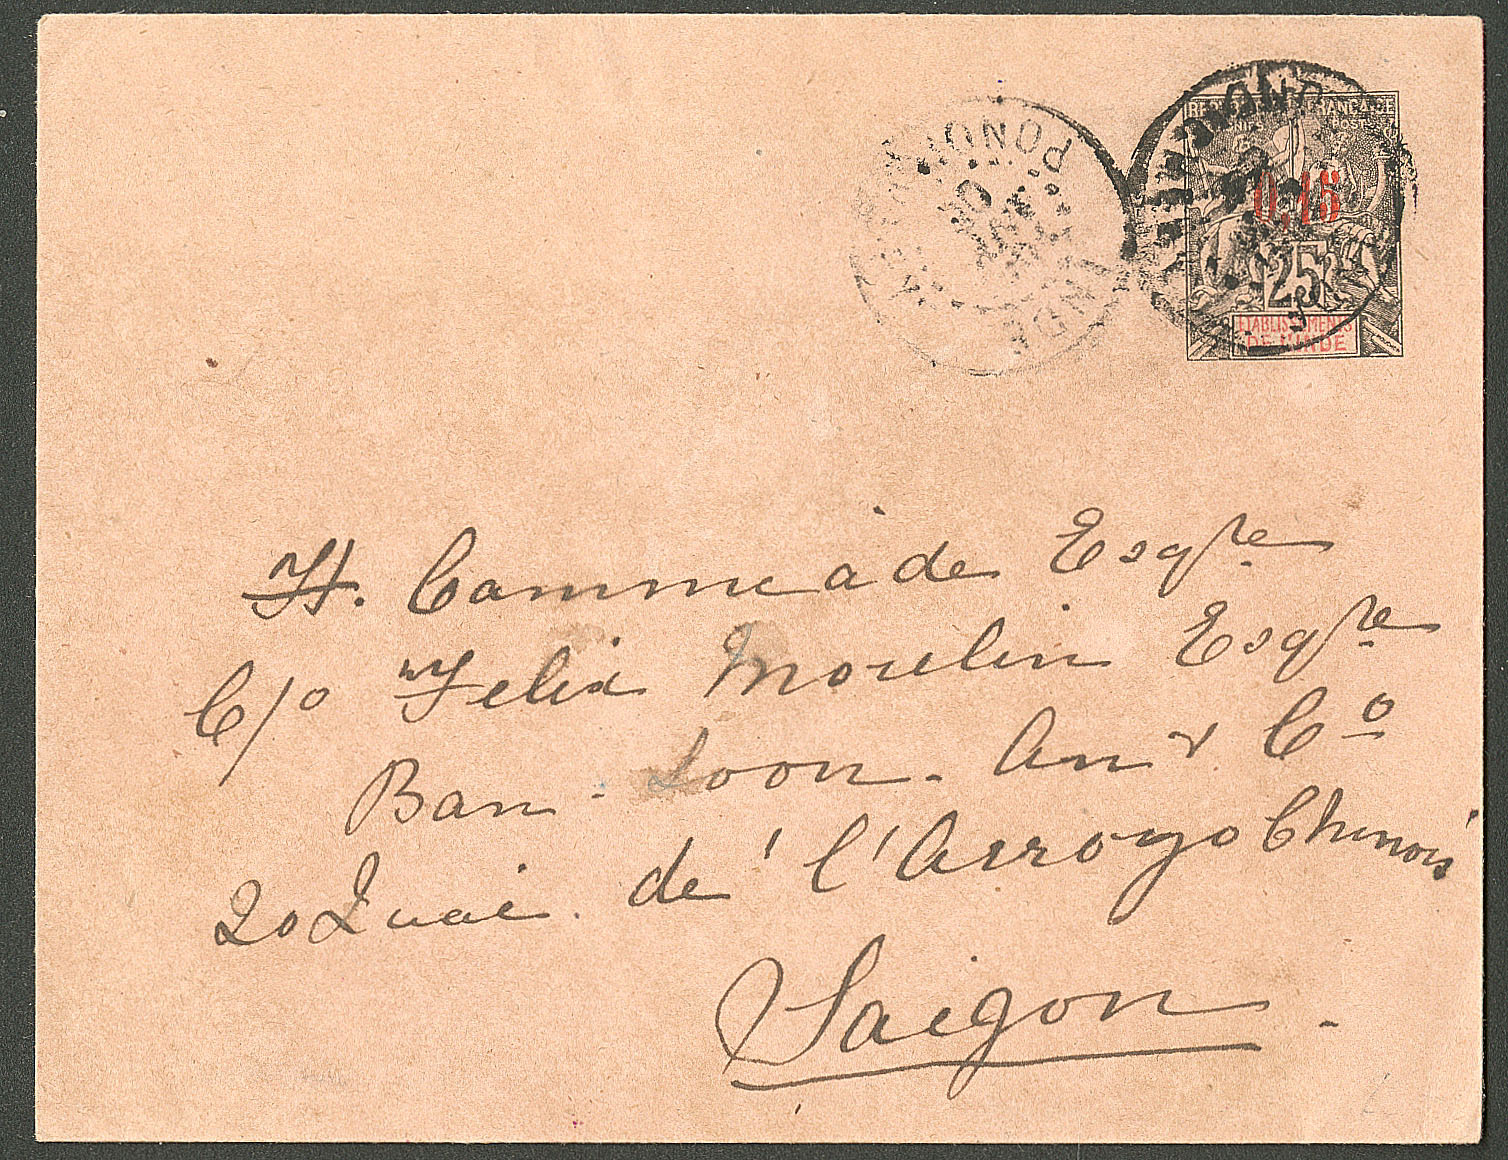 PONDICHERY
INDE
PONDICHERY
RÉPUBLIQUE FRANÇAISE
0,15
25
ÉTABLISSEMENTS
DE L'INDE
H. Cammiade Esqre
C/o Felix Moulin Esqre
Ban. Soon. An & Co
20 Quai de l'Arroyo Chinois
Saigon